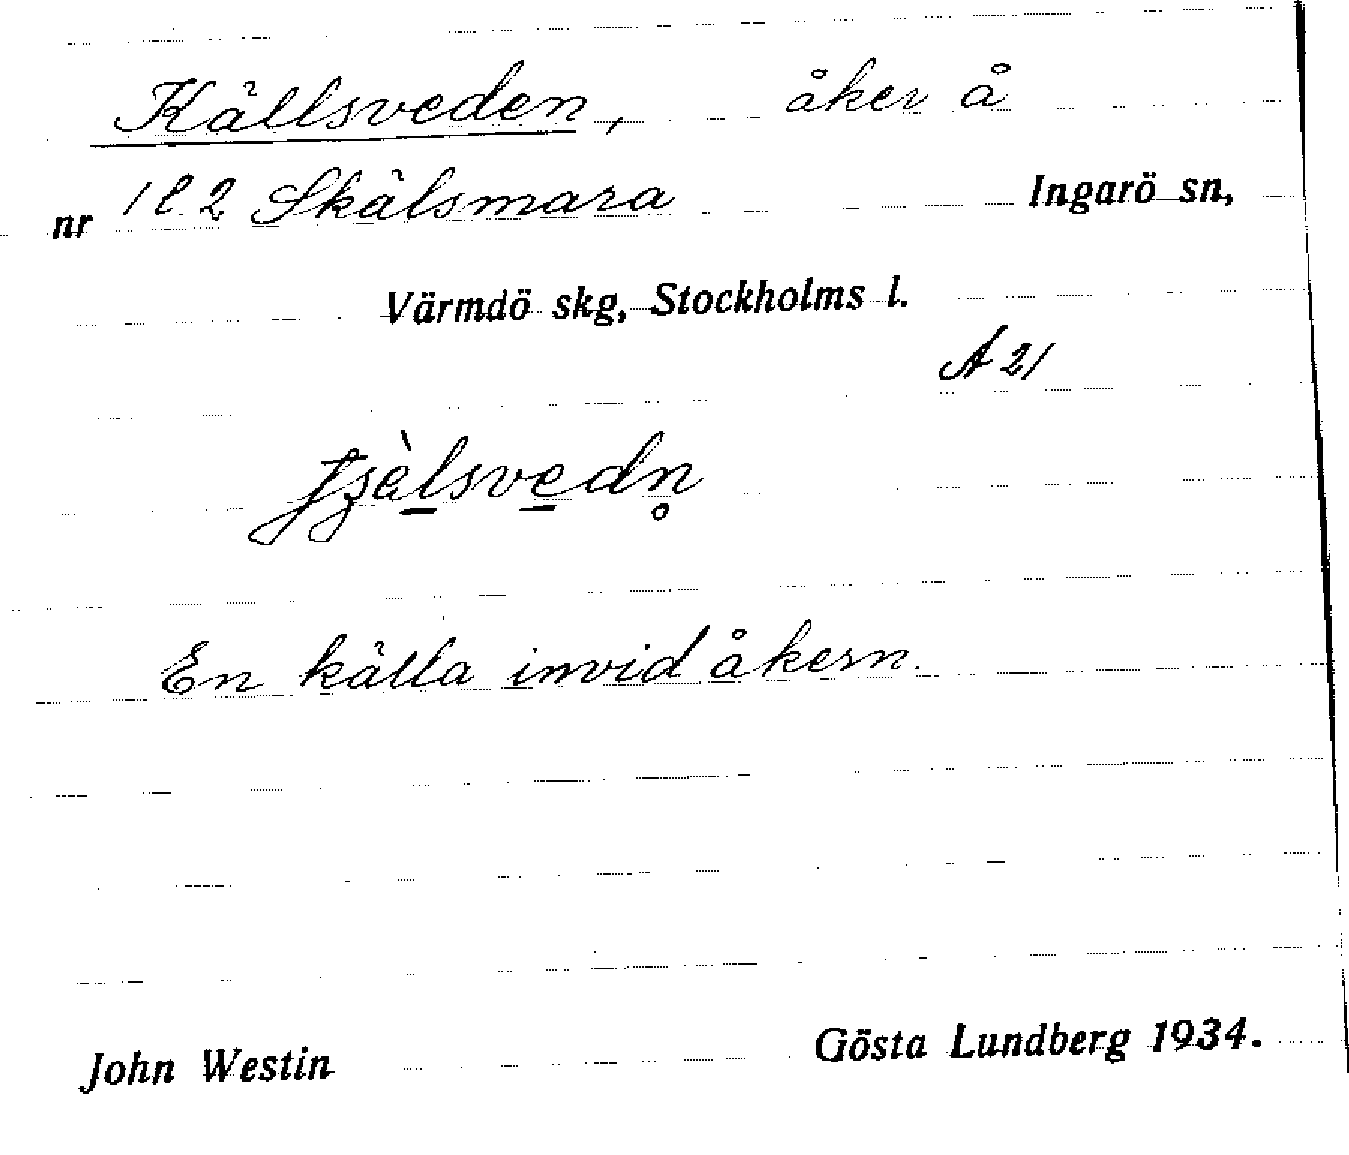 Källsveden, åker å
nr 1 o. 2 Skälsmara Ingarö sn,
Värmdö skg, Stockholms l.
A 21
En källa invid åkern.
John Westin Gösta Lundberg 1934.